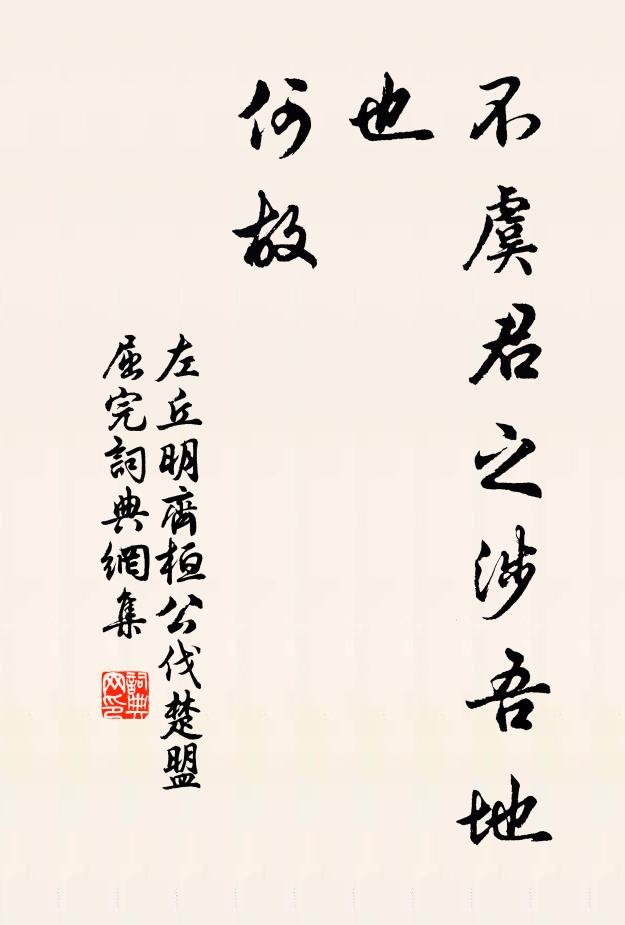 不虞君之涉吾地
也
何故
左丘明齊桓公伐楚盟
屈完詞典網集
詞典
网印